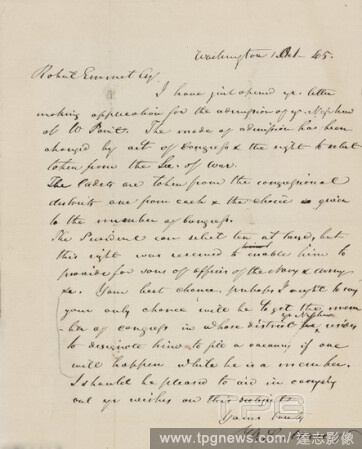 Washington 1 Oct 45.
Robert Emmet Esq
I have just opend yr. letter
making application for the admission of yr. Nephew
at W Point. The mode of admission has been
changed by act of Congress & the right to select
taken from the Sec. of War.
The Cadets are taken from the congressional
districts one from each & the choice is given
to the member of Congress.
The President can select ten at large, but
this right was reserved to enable him to
provide for sons of officers of the Navy & Army
&c. Your best chance, perhaps I ought to say
your only chance will be to get the mem
yr Nephew
ber of congress in whose district resides
to designate him to fill a vacancy if one
will happen while he is a member.
I should be pleased to aid in
out yr wishes on this subject
Yours truly
TPG
www.tpgnews.com/達志影像